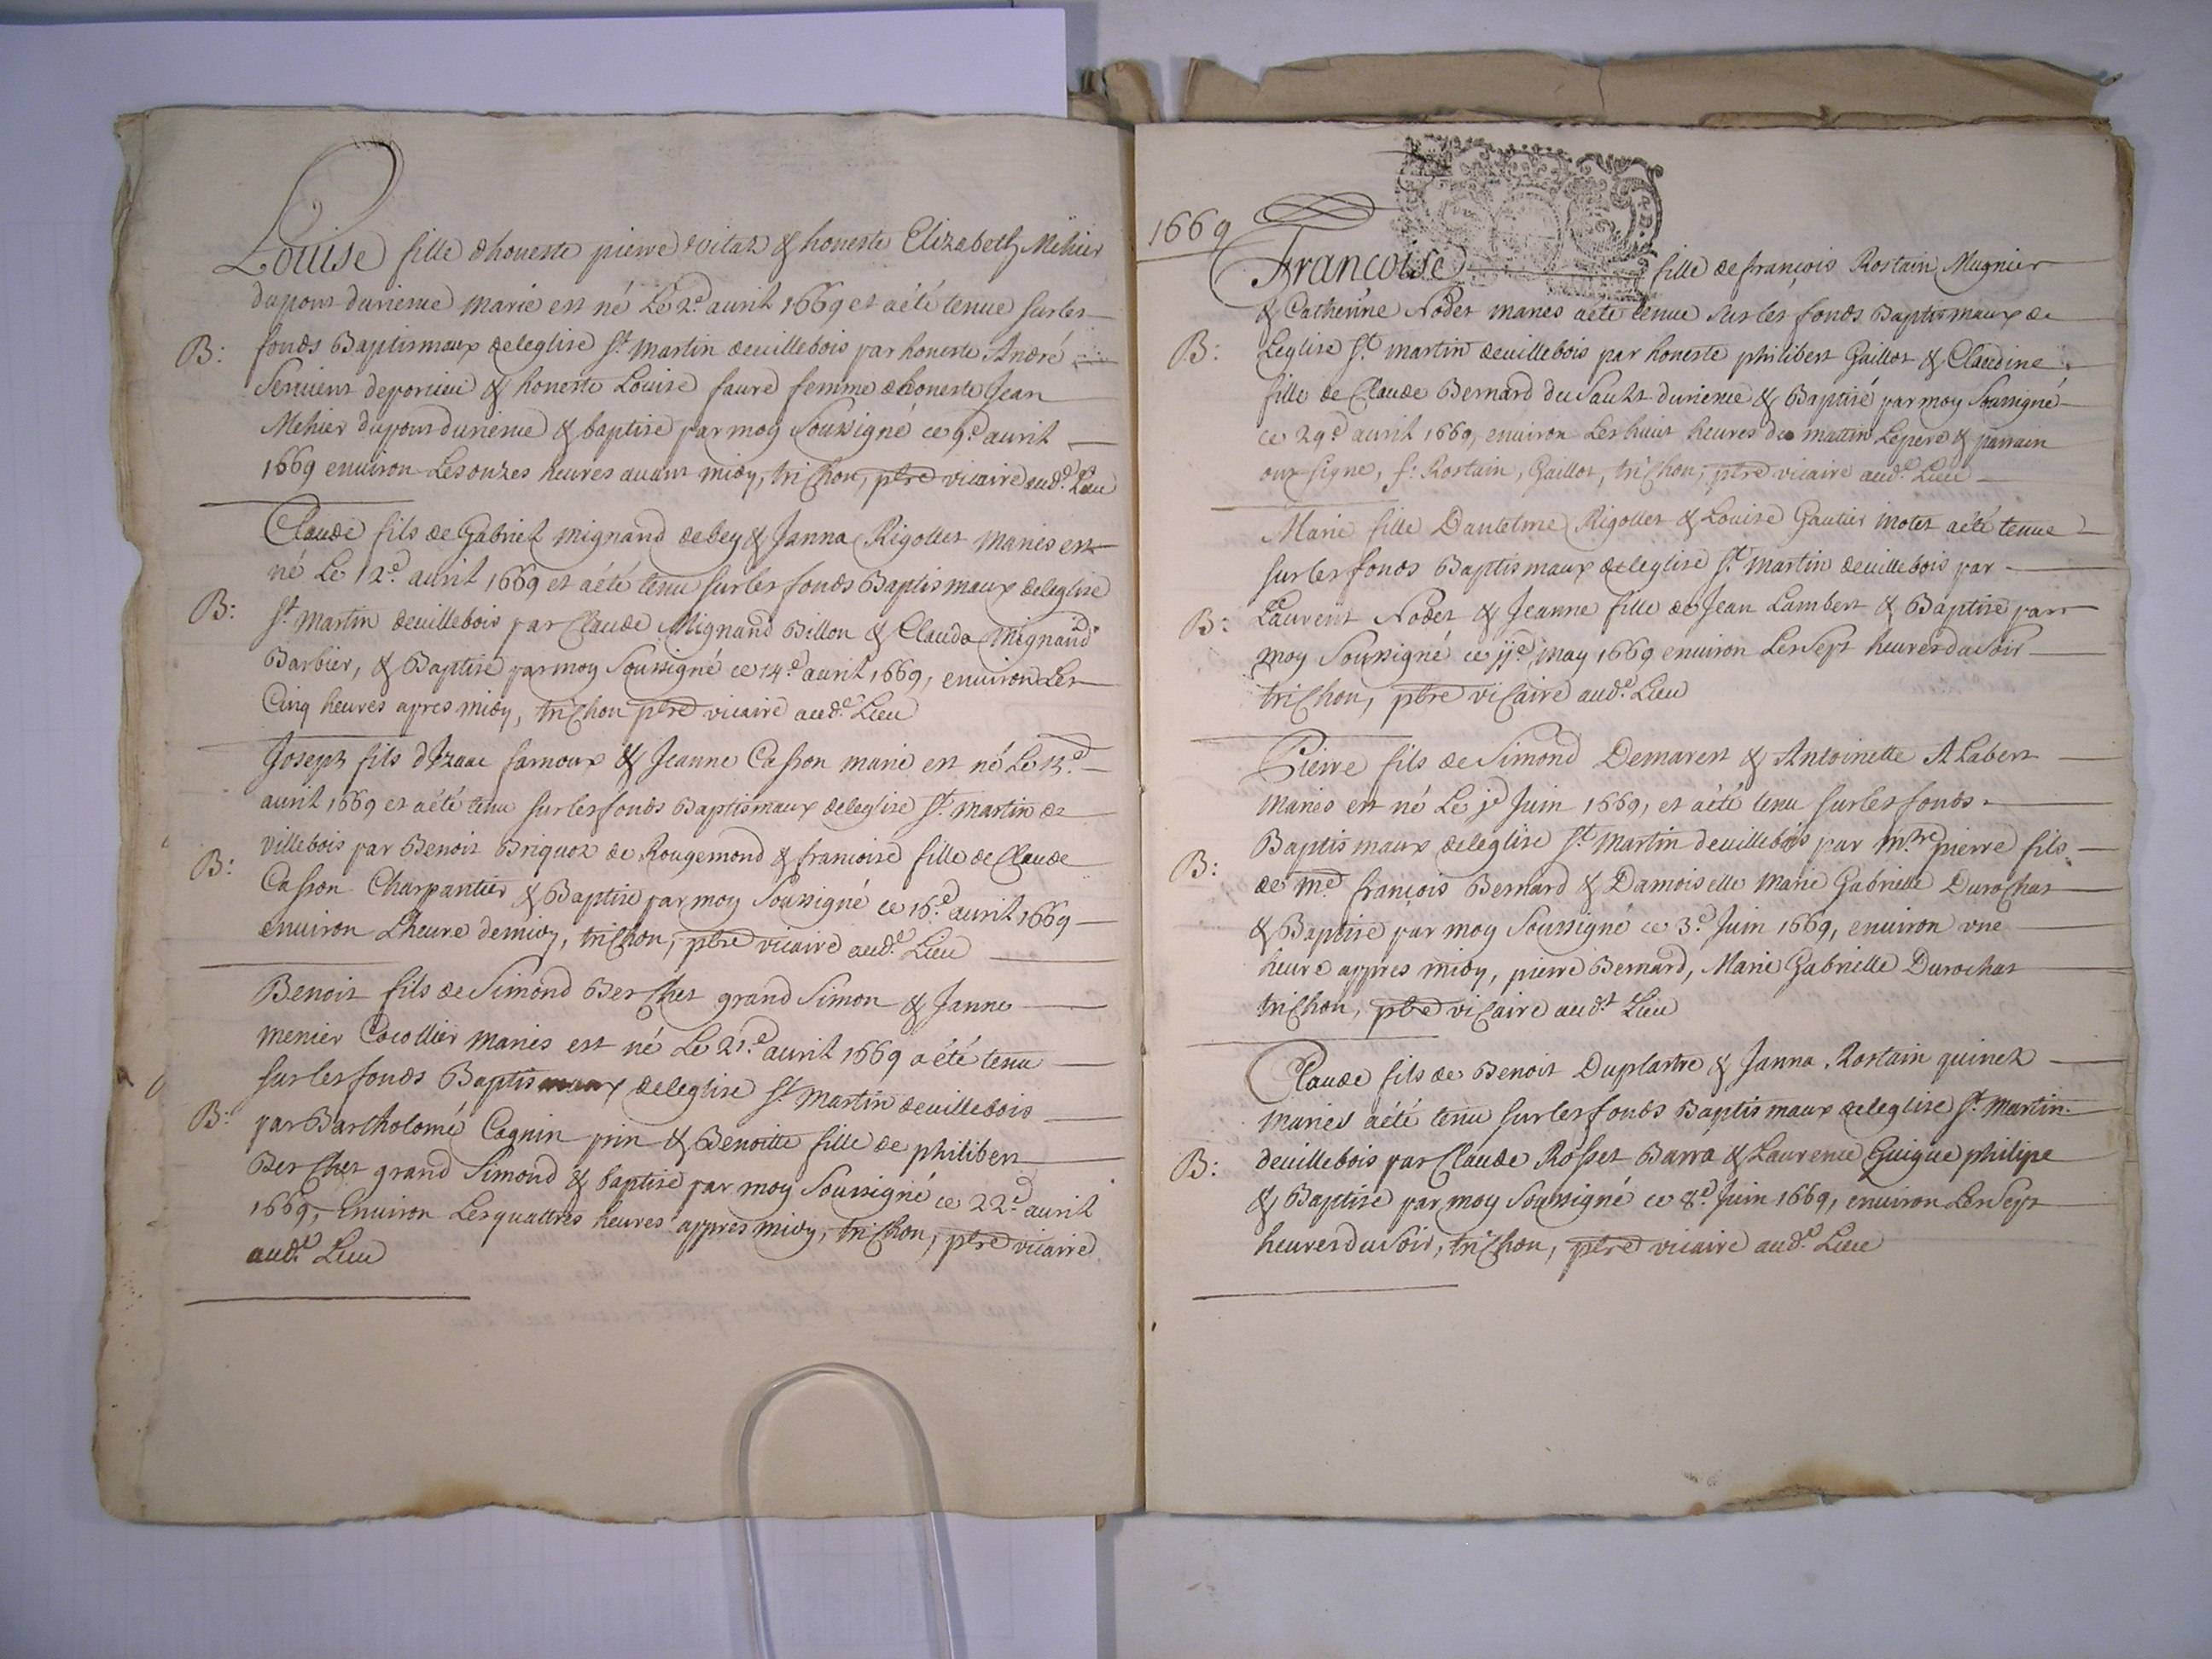 Louise fille dhoneste pierre vitaz & honeste Elizabeth Mehier
dupont durieme marié est né Le 2d. avril 1669 et a été tenue sur les
B:
fonds Baptismaux de leglise St. Martin de villebois par honeste André
Servient de & honeste Louise faure femme dhoneste Jean
Mehier dupont durieme & baptise par moy Soussigné ce 9d. avril
1669 environ Les onzes heures avant midy, trichon, ptre vicaire aud. Lieu
Claude fils de Gabriel mignand de bey & Janna Rigollet mariés est
né Le 12d. avril 1669 et a été tenu sur les fonds Baptismaux de leglise
B:
St. Martin de villebois par Claude Mignand Billon & Clauda Mignand
Barbier, & Baptise par moy Soussigné ce 14d. avril 1669, environ Les
Cinq heures apres midy, trichon ptre vicaire aud. Lieu
Joseph fils d'Izaac farnoux & Jeanne Casson marié est né Le 13d.
avril 1669 et a été tenu sur les fonds Baptismaux de leglise St. Martin de
B:
villebois par Benoit Briquoz de Rougemond & francoise fille de Claude
Casson Charpantier & Baptise par moy Soussigné ce 16d. avril 1669
environ L'heure de midy, trichon, ptre vicaire aud. Lieu
Benoit fils de Simond Berchet grand Simon & Janne
menier Cocollier mariés est né Le 21d. avril 1669 a été tenu
sur les fonds Baptismaux de leglise St. Martin de villebois
B:
par Bartholomé Cognin prin & Benoitte fille de philibert
Berchet grand Simond & baptise par moy Soussigné ce 22d. avril
1669, Environ Les quattres heures appres midy, trichon, ptre vicaire
aud. Lieu
1669
Françoise fille de françois Rostain Mugnier
& Catherine Nodet mariés a été tenue sur les fonds Baptismaux de
B:
Leglise St. Martin de villebois par honeste philibert Gaillot & Claudine
fille de Claude Bernard du Sault durieme & Baptisé par moy Soussigné
ce 29d. avril 1669, environ Les huit heures du mattin Lepere & parrain
ont signe, f: Rostain, Gaillot, trichon, ptre vicaire aud. Lieu
Marie fille Dantelme Rigollet & Louise Gautier motet a été tenue
sur les fonds Baptismaux de leglise St. Martin de villebois par
B:
Laurent Nodet & Jeanne fille de Jean Lambert & Baptise par
moy Soussigné ce jjd. may 1669 environ Les Sept heures du Soir
trichon, ptre vicaire aud. Lieu
Pierre fils de Simond Demarest & Antoinette Alabert
mariés est né Le jd. Juin 1669, et a été tenu sur les fonds
B:
Baptismaux de leglise St. Martin de villebois par mtre pierre fils
de me françois Bernard & Damoiselle Marie Gabrielle Durochat
& Baptise par moy Soussigné ce 3d. Juin 1669, environ vne
heure appres midy, pierre Bernard, Marie Gabrielle Durochat
trichon, ptre vicaire audt Lieu
Claude fils de Benoit Duplastre & Janna Rostain quinet
mariés a été tenu sur les fonds Baptismaux de leglise St. Martin
B:
de villebois par Claude Rosset Barra & Laurence Guigue philipe
& Baptise par moy Soussigné ce 8d. Juin 1669, environ Les Sept
heures du Soir, trichon, ptre vicaire aud. Lieu